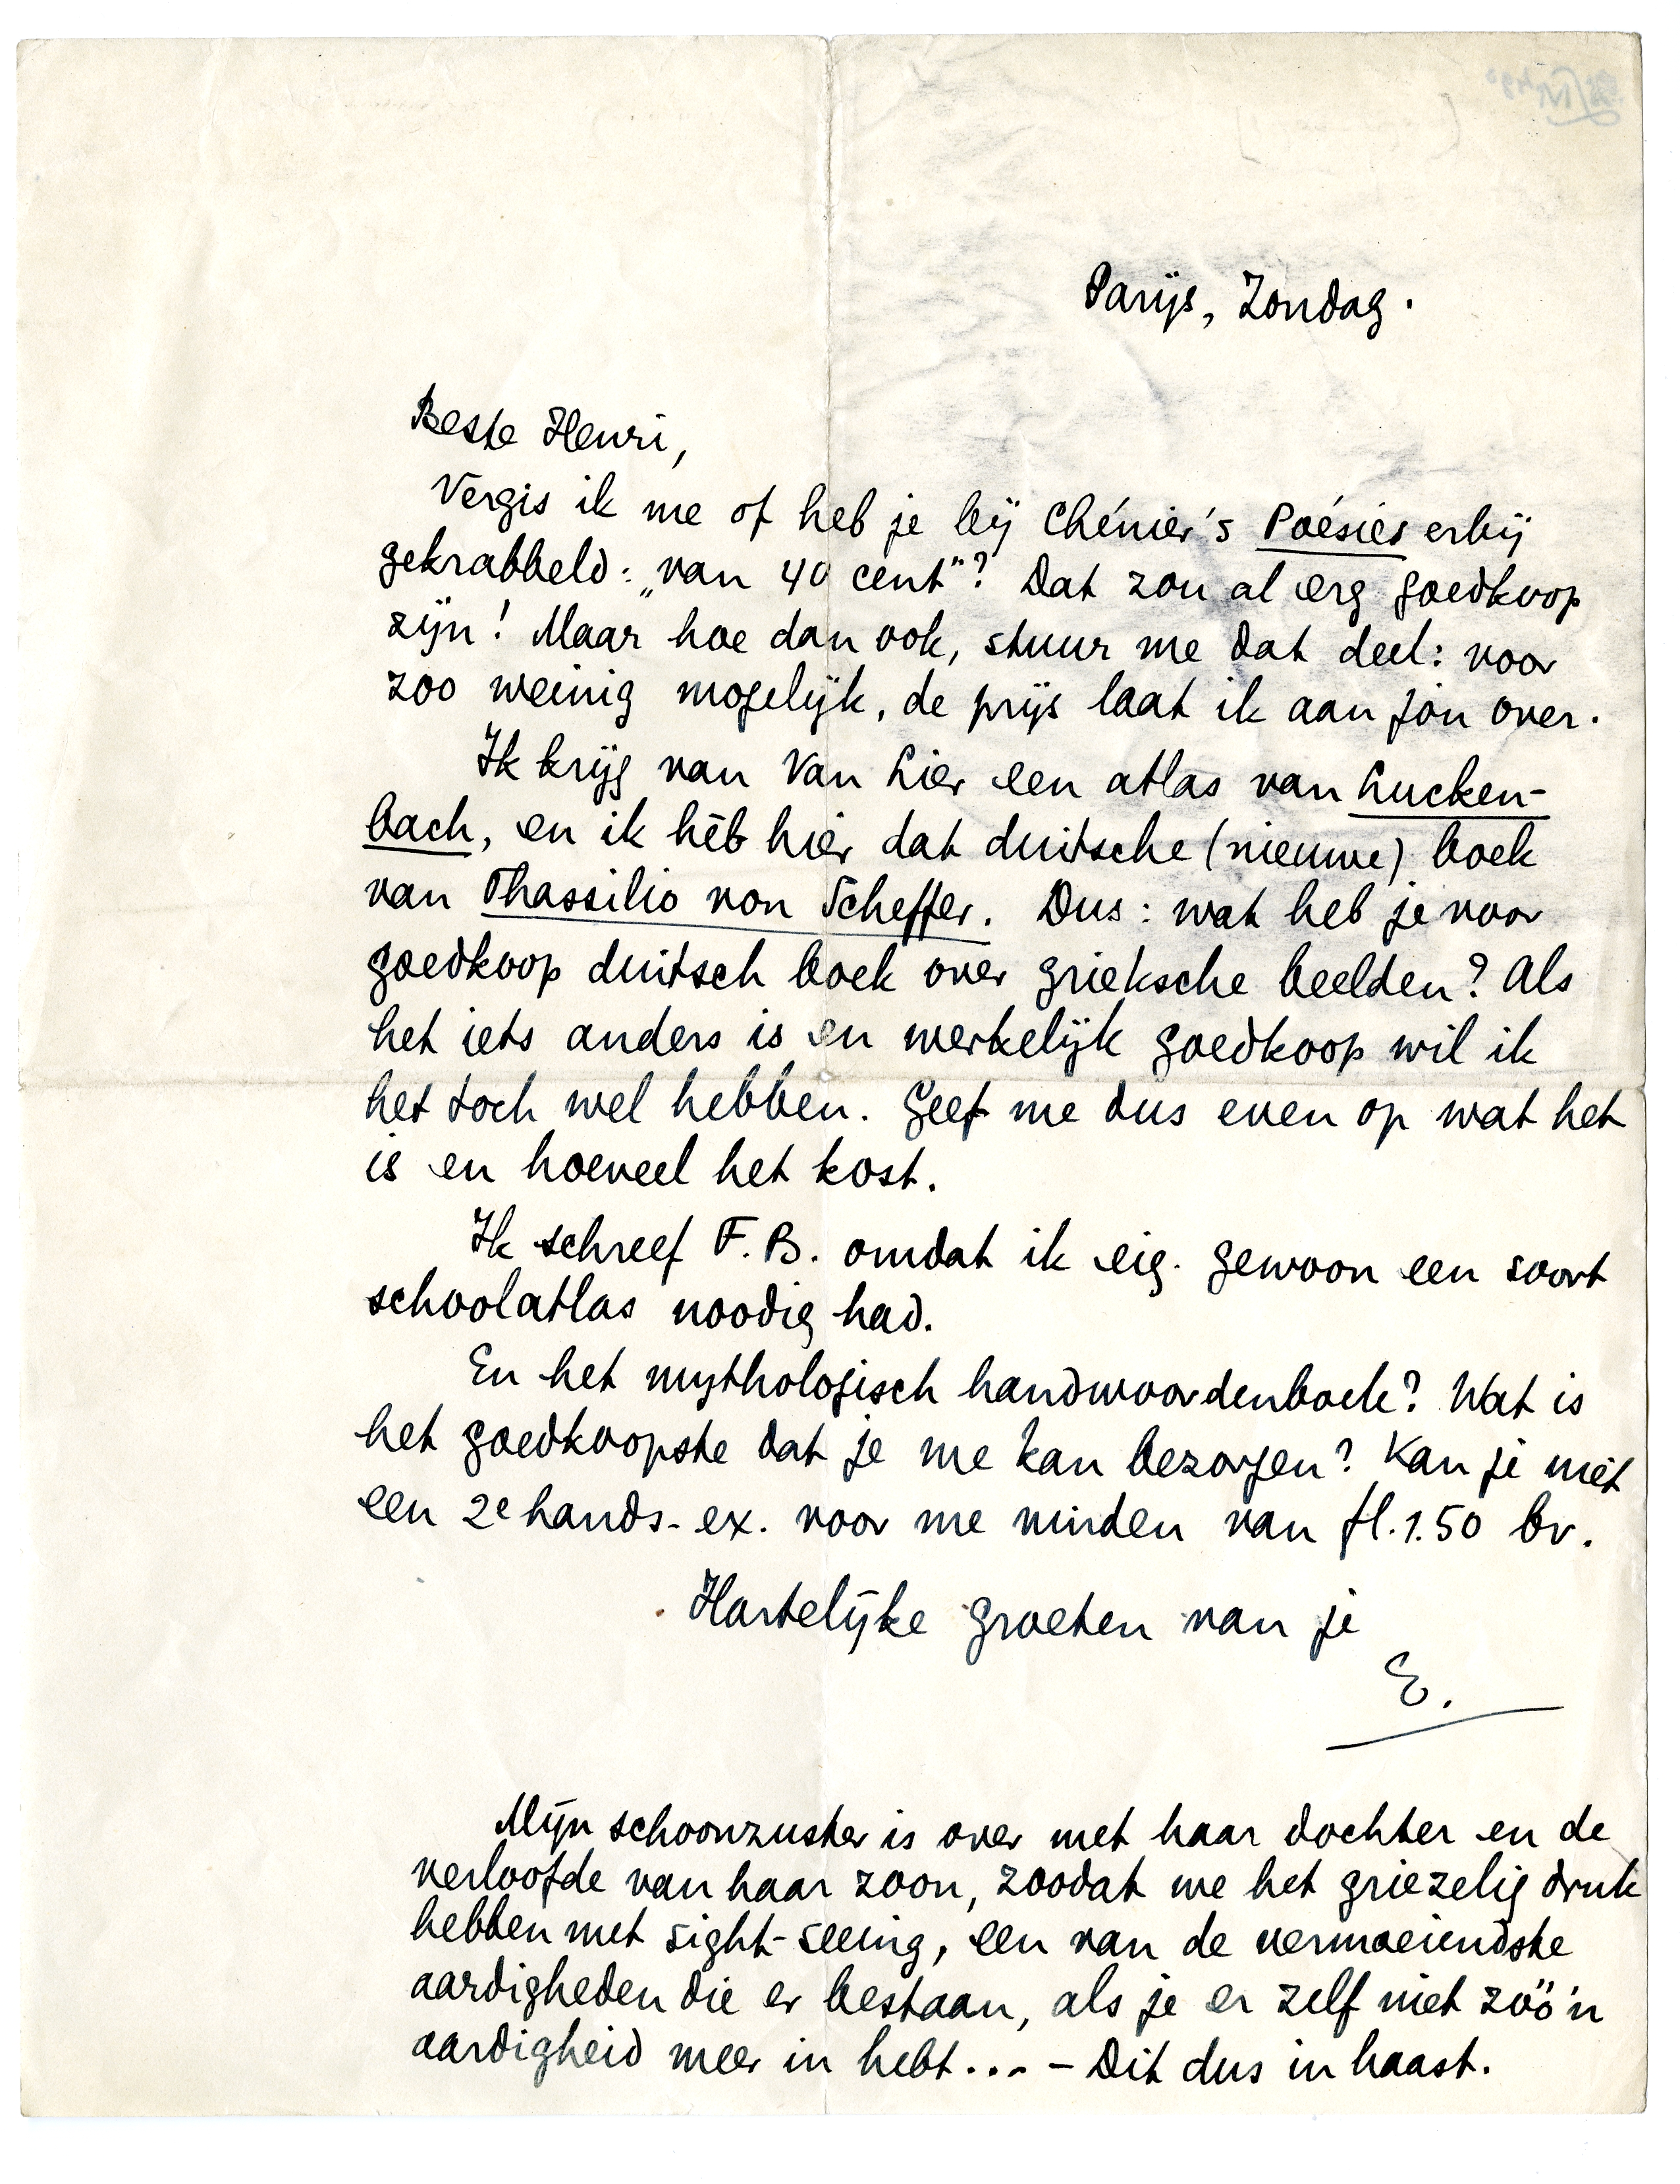 Parijs, Zondag.
Beste Henri,
Vergis ik me of heb je bij Chénier's Poésies erbij
gekrabbeld: „van 40 cent"? Dat zou al erg goedkoop
zijn! Maar hoe dan ook, stuur me dat deel: voor
zoo weinig mogelijk, de prijs laat ik aan jou over.
Ik krijg van Van Lier een atlas van Lucken-
bach, en ik hèb hier dat duitsche (nieuwe) boek
van Thassilio von Scheffer. Dus: wat heb je voor
goedkoop duitsch boek over grieksche beelden? Als
het iets anders is en werkelijk goedkoop wil ik
het toch wel hebben. Geef me dus even op wat het
is en hoeveel het kost.
Ik schreef F.B. omdat ik eig. gewoon een soort
schoolatlas noodig had.
En het mythologisch handwoordenboek? Wat is
het goedkoopste dat je me kan bezorgen? Kan je niet
een 2e hands-ex. voor me vinden van fl.1.50 bv.
Hartelijke groeten van je
E.
Mijn schoonzuster is over met haar dochter en de
verloofde van haar zoon, zoodat we het griezelig druk
hebben met sight-seeing, een van de vermoeiendste
aardigheden die er bestaan, als je er zelf niet zóó'n
aardigheid meer in hebt... – Dit dus in haast.